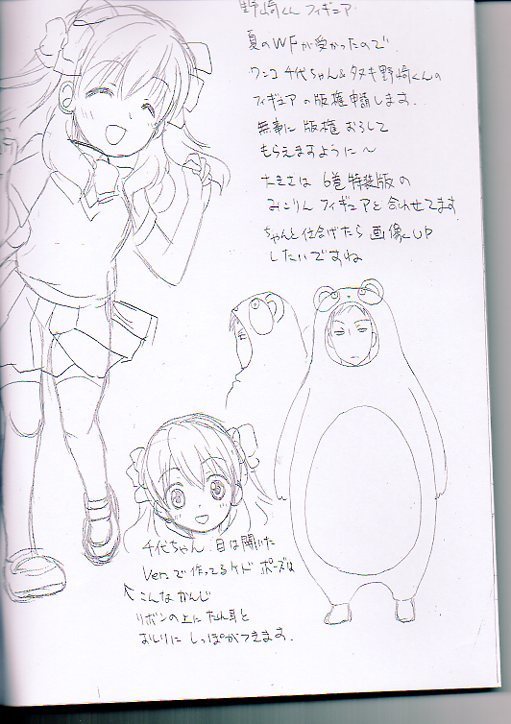 野崎くん フィギュア
夏のWFが受かったので
ワンコ千代ちゃん&タヌキ野崎くんの
フィギュアの版権申請します.
無事に版権おろして
もらえますように〜
大きさは 6巻特装版の
みこりんフィギュアと合わせてます
ちゃんと仕上げたら画像UP
したいですね
千代ちゃん 目は開いた
Ver.で作ってるケド ポーズは
↖こんなかんじ
リボンの上にたれ耳と
おしりにしっぽがつきます.